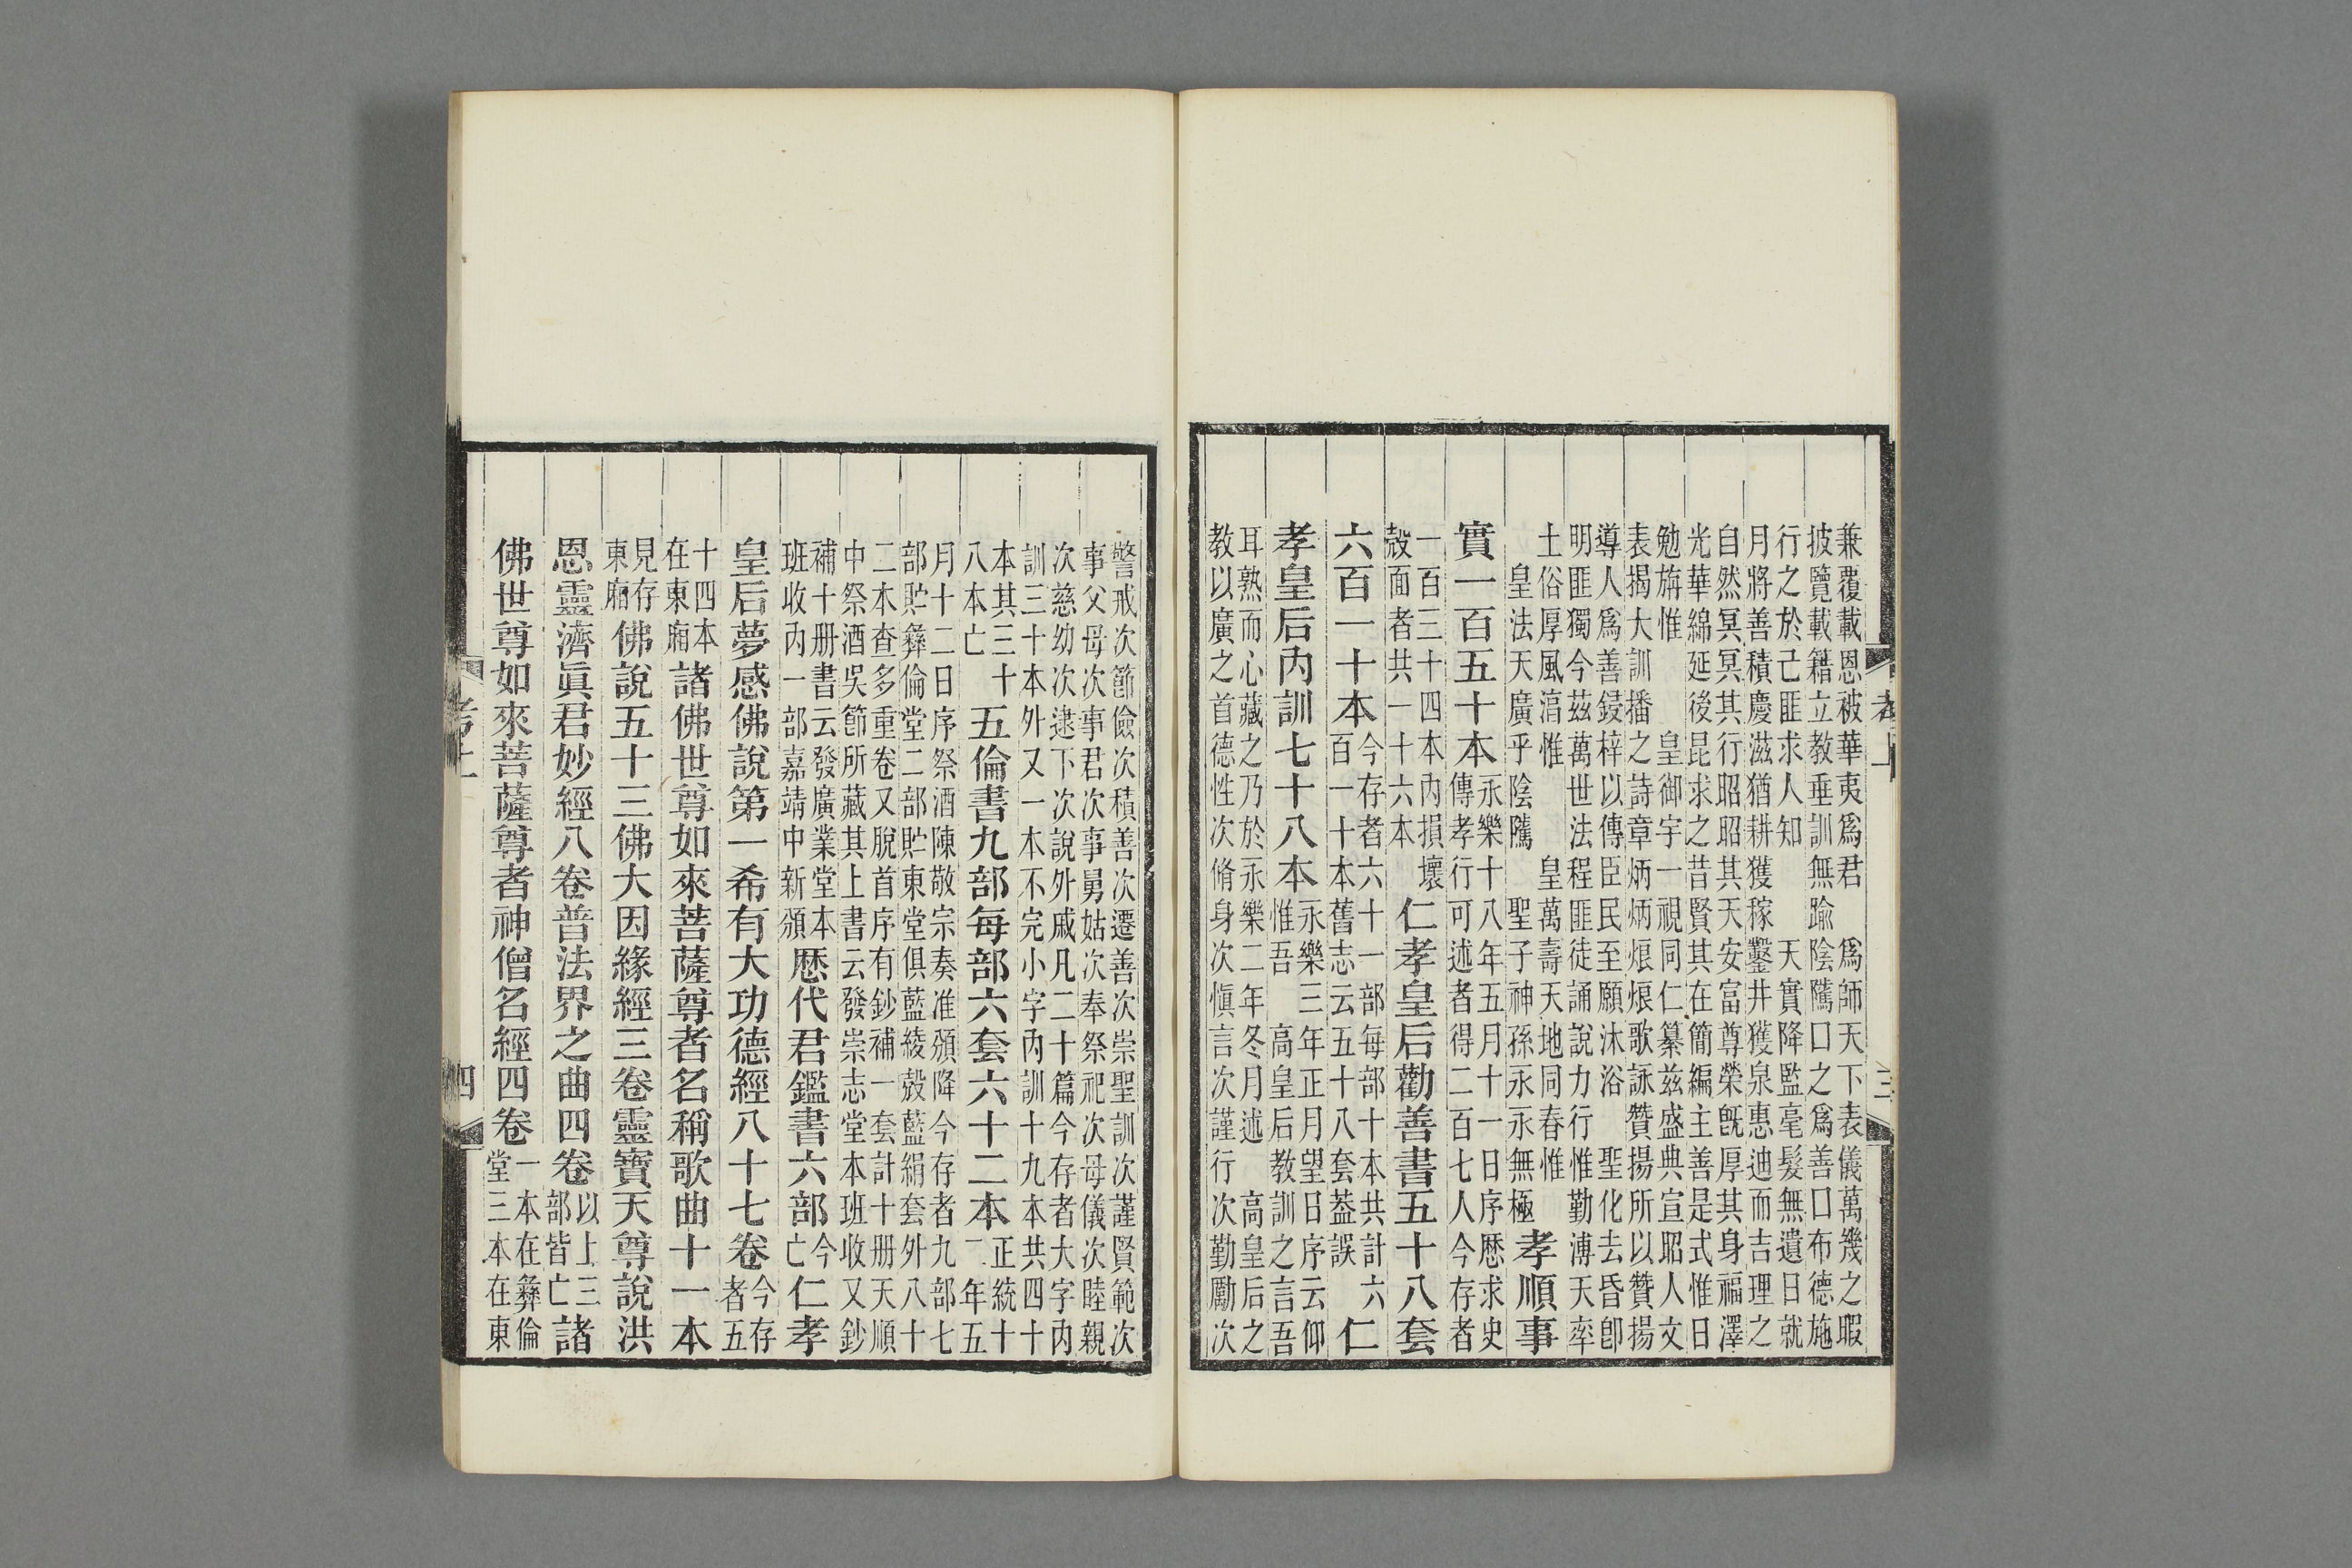 兼覆載恩被華夷爲君　爲師天下表儀萬幾之暇
披覽載籍立教垂訓無踰陰隲口之爲善口布德施
行之於己匪求人知　天實降監毫髮無遺日就
月將善積慶滋猶耕獲稼鑿井獲泉惠迪而吉理之
自然冥冥其行昭昭其天安富尊榮旣厚其身福澤
光華綿延後昆求之昔賢其在簡編主善是式惟日
勉旃惟　皇御宇一視同仁纂兹盛典宣昭人文
表揭大訓播之詩章炳炳烺烺歌詠贊揚所以贊揚
導人爲善鋟梓以傳臣民至願沐浴　聖化去昏卽
明匪獨今茲萬世法程匪徒誦說力行惟勤溥天率
土俗厚風淯惟　皇萬壽天地同春惟
皇法天廣乎陰隲　聖子神孫永永無極
孝順事
實一百五十本
永樂十八年五月十一日序歷求史
傳孝行可述者得二百七人今存者
一百三十四本內損壞
殼面者共一十六本
仁孝皇后勸善書五十八套
六百一十本
今存者六十一部每部十本共計六
百一十本舊志云五十八套葢誤
仁
孝皇后內訓七十八本
永樂三年正月望日序云仰
惟吾　高皇后教訓之言吾
耳熟而心藏之乃於永樂二年冬月述　高皇后之
教以廣之首德性次脩身次愼言次謹行次勤勵次
考上
三
警戒次節儉次積善次遷善次崇聖訓次謹賢範次
事父母次事君次事舅姑次奉祭祀次母儀次睦親
次慈幼次逮下次說外戚凡二十篇今存者大字內
訓三十本外又一本不完小字內訓十九本共四十
本其三十
八本亡
五倫書九部每部六套六十二本
正統十
二年五
月十二日序祭酒陳敬宗奏准頒降今存者九部七
部貯彝倫堂二部貯東堂俱藍綾殼藍絹套外八十
二本查多重卷又脫首序有鈔補一套計十册天順
中祭酒吳節所藏其上書云發崇志堂本班收又鈔
補十册書云發廣業堂本
班收內一部嘉靖中新頒
歷代君鑑書六部
今
亡
仁孝
皇后夢感佛說第一希有大功德經八十七卷
今存
者五
十四本
在東廂
諸佛世尊如來菩薩尊者名稱歌曲十一本
見存
東廂
佛說五十三佛大因緣經三卷靈寶天尊說洪
恩靈濟眞君妙經八卷普法界之曲四卷
以上三
部皆亡
諸
佛世尊如來菩薩尊者神僧名經四卷
一本在彝倫
堂三本在東
考上
四